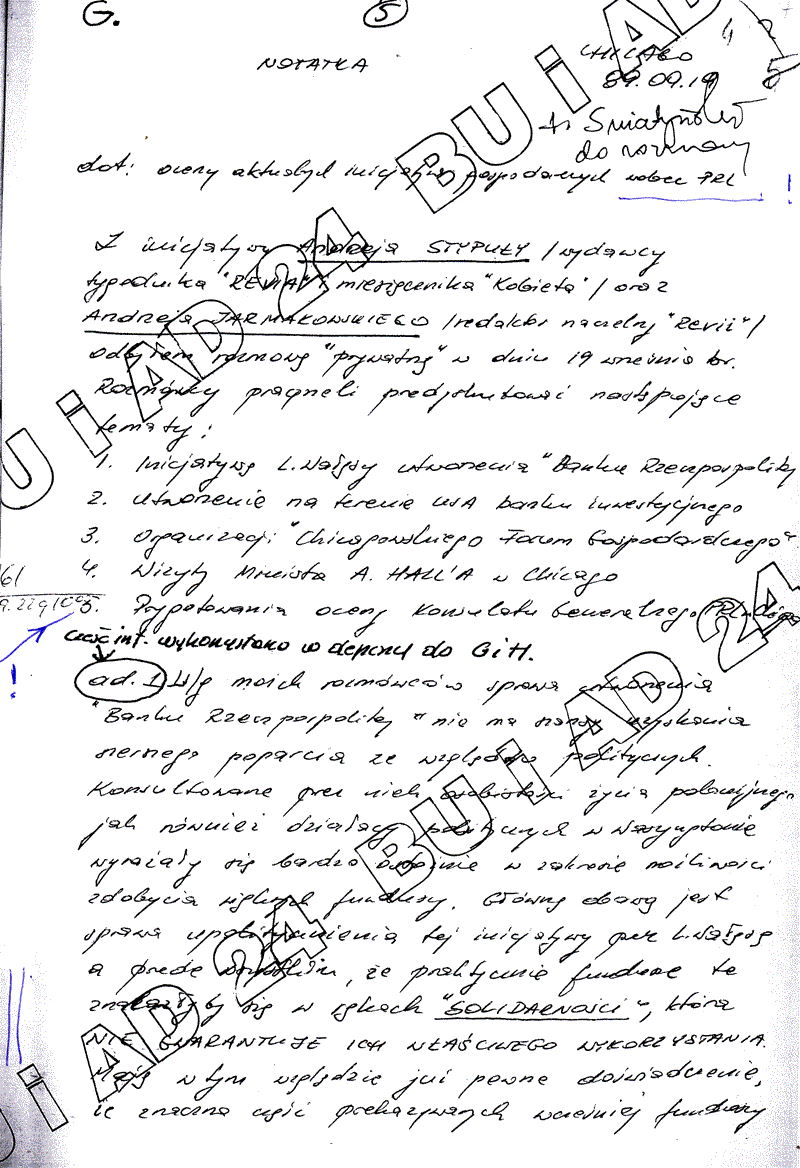 G.
5
NOTATKA
CHICAGO
89.09.19
do rozmowy
dot: oceny aktualnych inicjatyw gospodarczych wobec PRL
!
Z inicjatywy Andrzeja STYPUŁY /wydawcy
tygodnika "REVIA" i miesięcznika "Kobieta"/ oraz
Andrzeja JARMAKOWSKIEGO /redaktor naczelny "Revii"/
odbyłem rozmowę "prywatną" w dniu 19 września br.
Rozmówcy pragnęli przedyskutować następujące
tematy:
1. Inicjatywę L. Wałęsy utworzenia "Banku Rzeczpospolitej
2. Utworzenie na terenie USA banku inwestycyjnego
3. Organizacji "Chicagowskiego Forum Gospodarczego"
4. Wizyty Ministra A. HALL'A w Chicago
5. Przygotowania oceny Konsulatu Generalnego PRL
część inf. wykorzystano w depeszy do G i H.
!
ad. 1 W/g moich rozmówców sprawa utworzenia
"Banku Rzeczpospolitej" nie ma szansy uzyskania
szerszego poparcia ze względów politycznych.
Konsultowane przez nich osobistości życia polonijnego
jak również działaczy politycznych w Waszyngtonie
wyrażały się bardzo ostrożnie w zakresie możliwości
zdobycia większych funduszy. Główną obawą jest
sprawa upolitycznienia tej inicjatywy przez L. Wałęsę
a przede wszystkim, że praktycznie fundusze te
znalazłyby się w rękach "SOLIDARNOŚCI", która
NIE GWARANTUJE ICH WŁAŚCIWEGO WYKORZYSTANIA.
Mają w tym względzie już pewne doświadczenie,
że znaczna część przekazywanych wcześniej funduszy
BU i AD 24 BU i AD
BU i AD 24 BU i AD 24
BU i AD 24 BU i AD 24